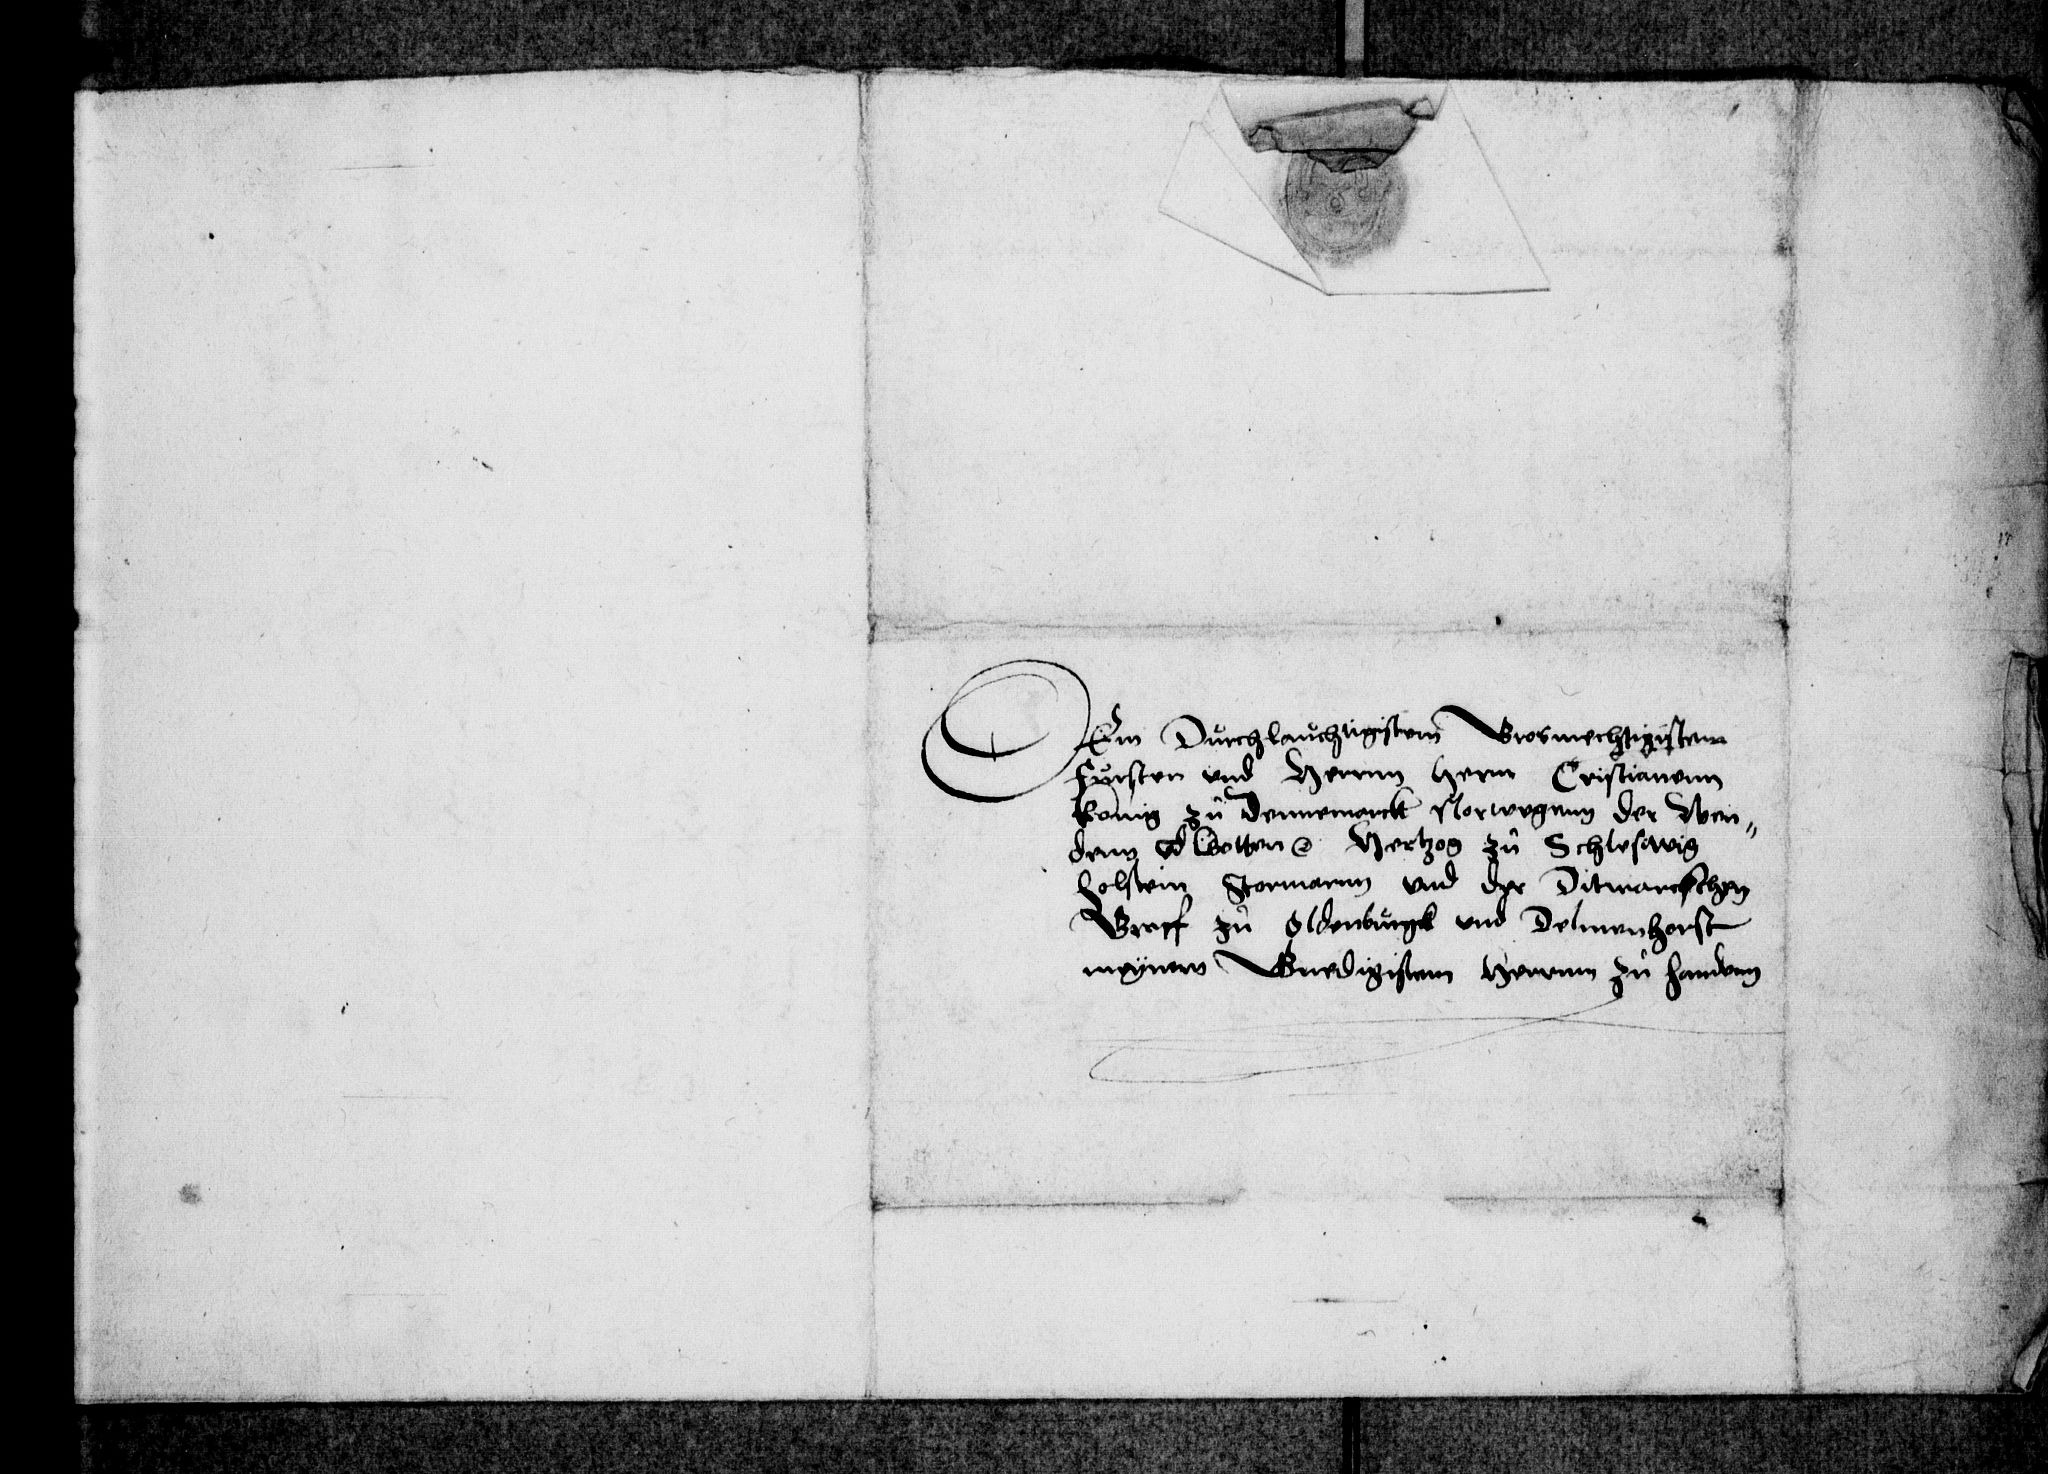 DEm Durchlauchtigistem Grosmechtigistem
Fursten vnd Herrnn hern Cristianenn
konig zu Dennemarck Norwegenn der Wen„
denn vnd Gotten Hertzog zu Schleswig
holstein Stormarnn vnd der Ditmarckschen
Graff zu Oldenburgk vnd Delmenhorst
meynem Gnedigistem Herrnn zu handenn